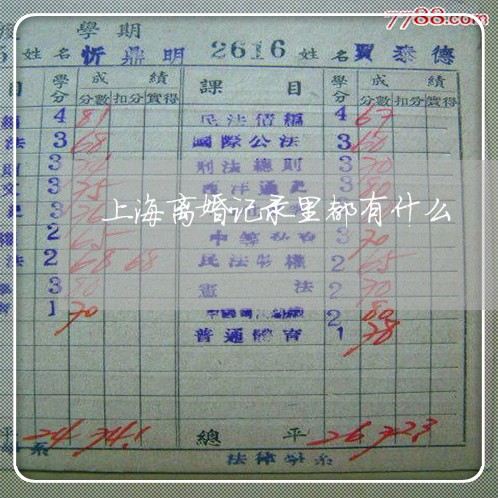 7788.com
學期
姓名 忻鼎明 2616 姓名 賈泰德
目 學分 成績 課目 學分 成績
分數 扣分 實得 分數 扣分 實得
4 81 民法債編 4 67
法 3 68 國際公法 3 60
3 刑法總則 3 70
文 3 75 西洋通史 3
3
上海离婚记录里都有什么
2 65 3 70
法 2 68 68 民法物權 2 65
3 80 憲法 2 70
1 70 2 80
普通體育 1 78
平 24 74.1 總平 26 72.3
系 法律學系